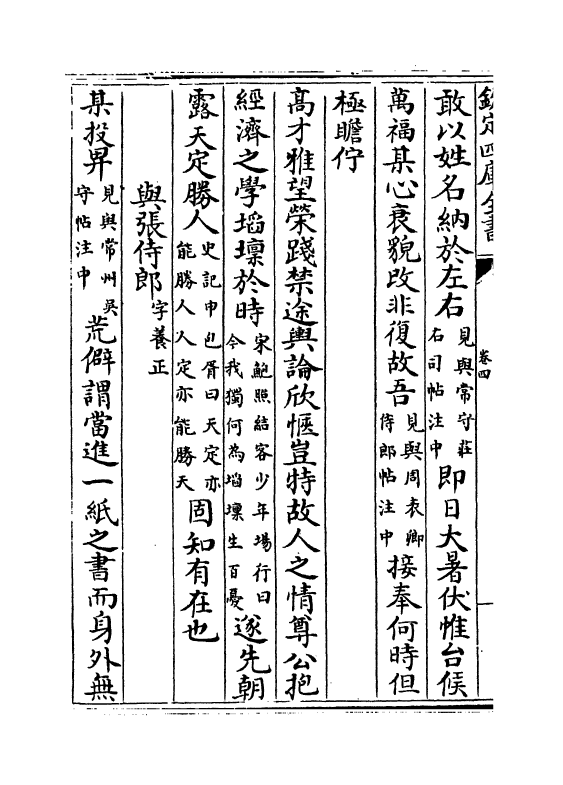 欽定四庫全書
卷四
敢以姓名納於左右見與常守莊右司帖注中即日大暑伏惟台候
萬福某心衰貌改非復故吾見與周表卿侍郎帖注中接奉何時但
極瞻佇
高才雅望榮踐禁途輿論欣愜豈特故人之情尊公抱
經濟之學塪壈於時宋鮑照結客少年場行曰今我獨何為塪壈生百憂遂先朝
露天定勝人史記申包胥曰天定亦能勝人人定亦能勝天固知有在也
與張侍郎字養正
某投畀見與常州吳守帖注中荒僻謂當進一紙之書而身外無